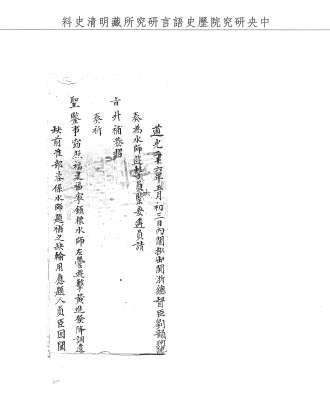 中央研究院歷史語言研究所藏明清史科
五月初三日內閣抄出閩浙總督臣劉韻珂
奏為水師遊擊員缺緊要遴員請
旨升補恭摺
奏祈
聖鑒事竊照福建福寧鎮標水師左營遊擊黃進發降調遺
缺前准部咨係水師題補之缺輪用應題人員臣因閩